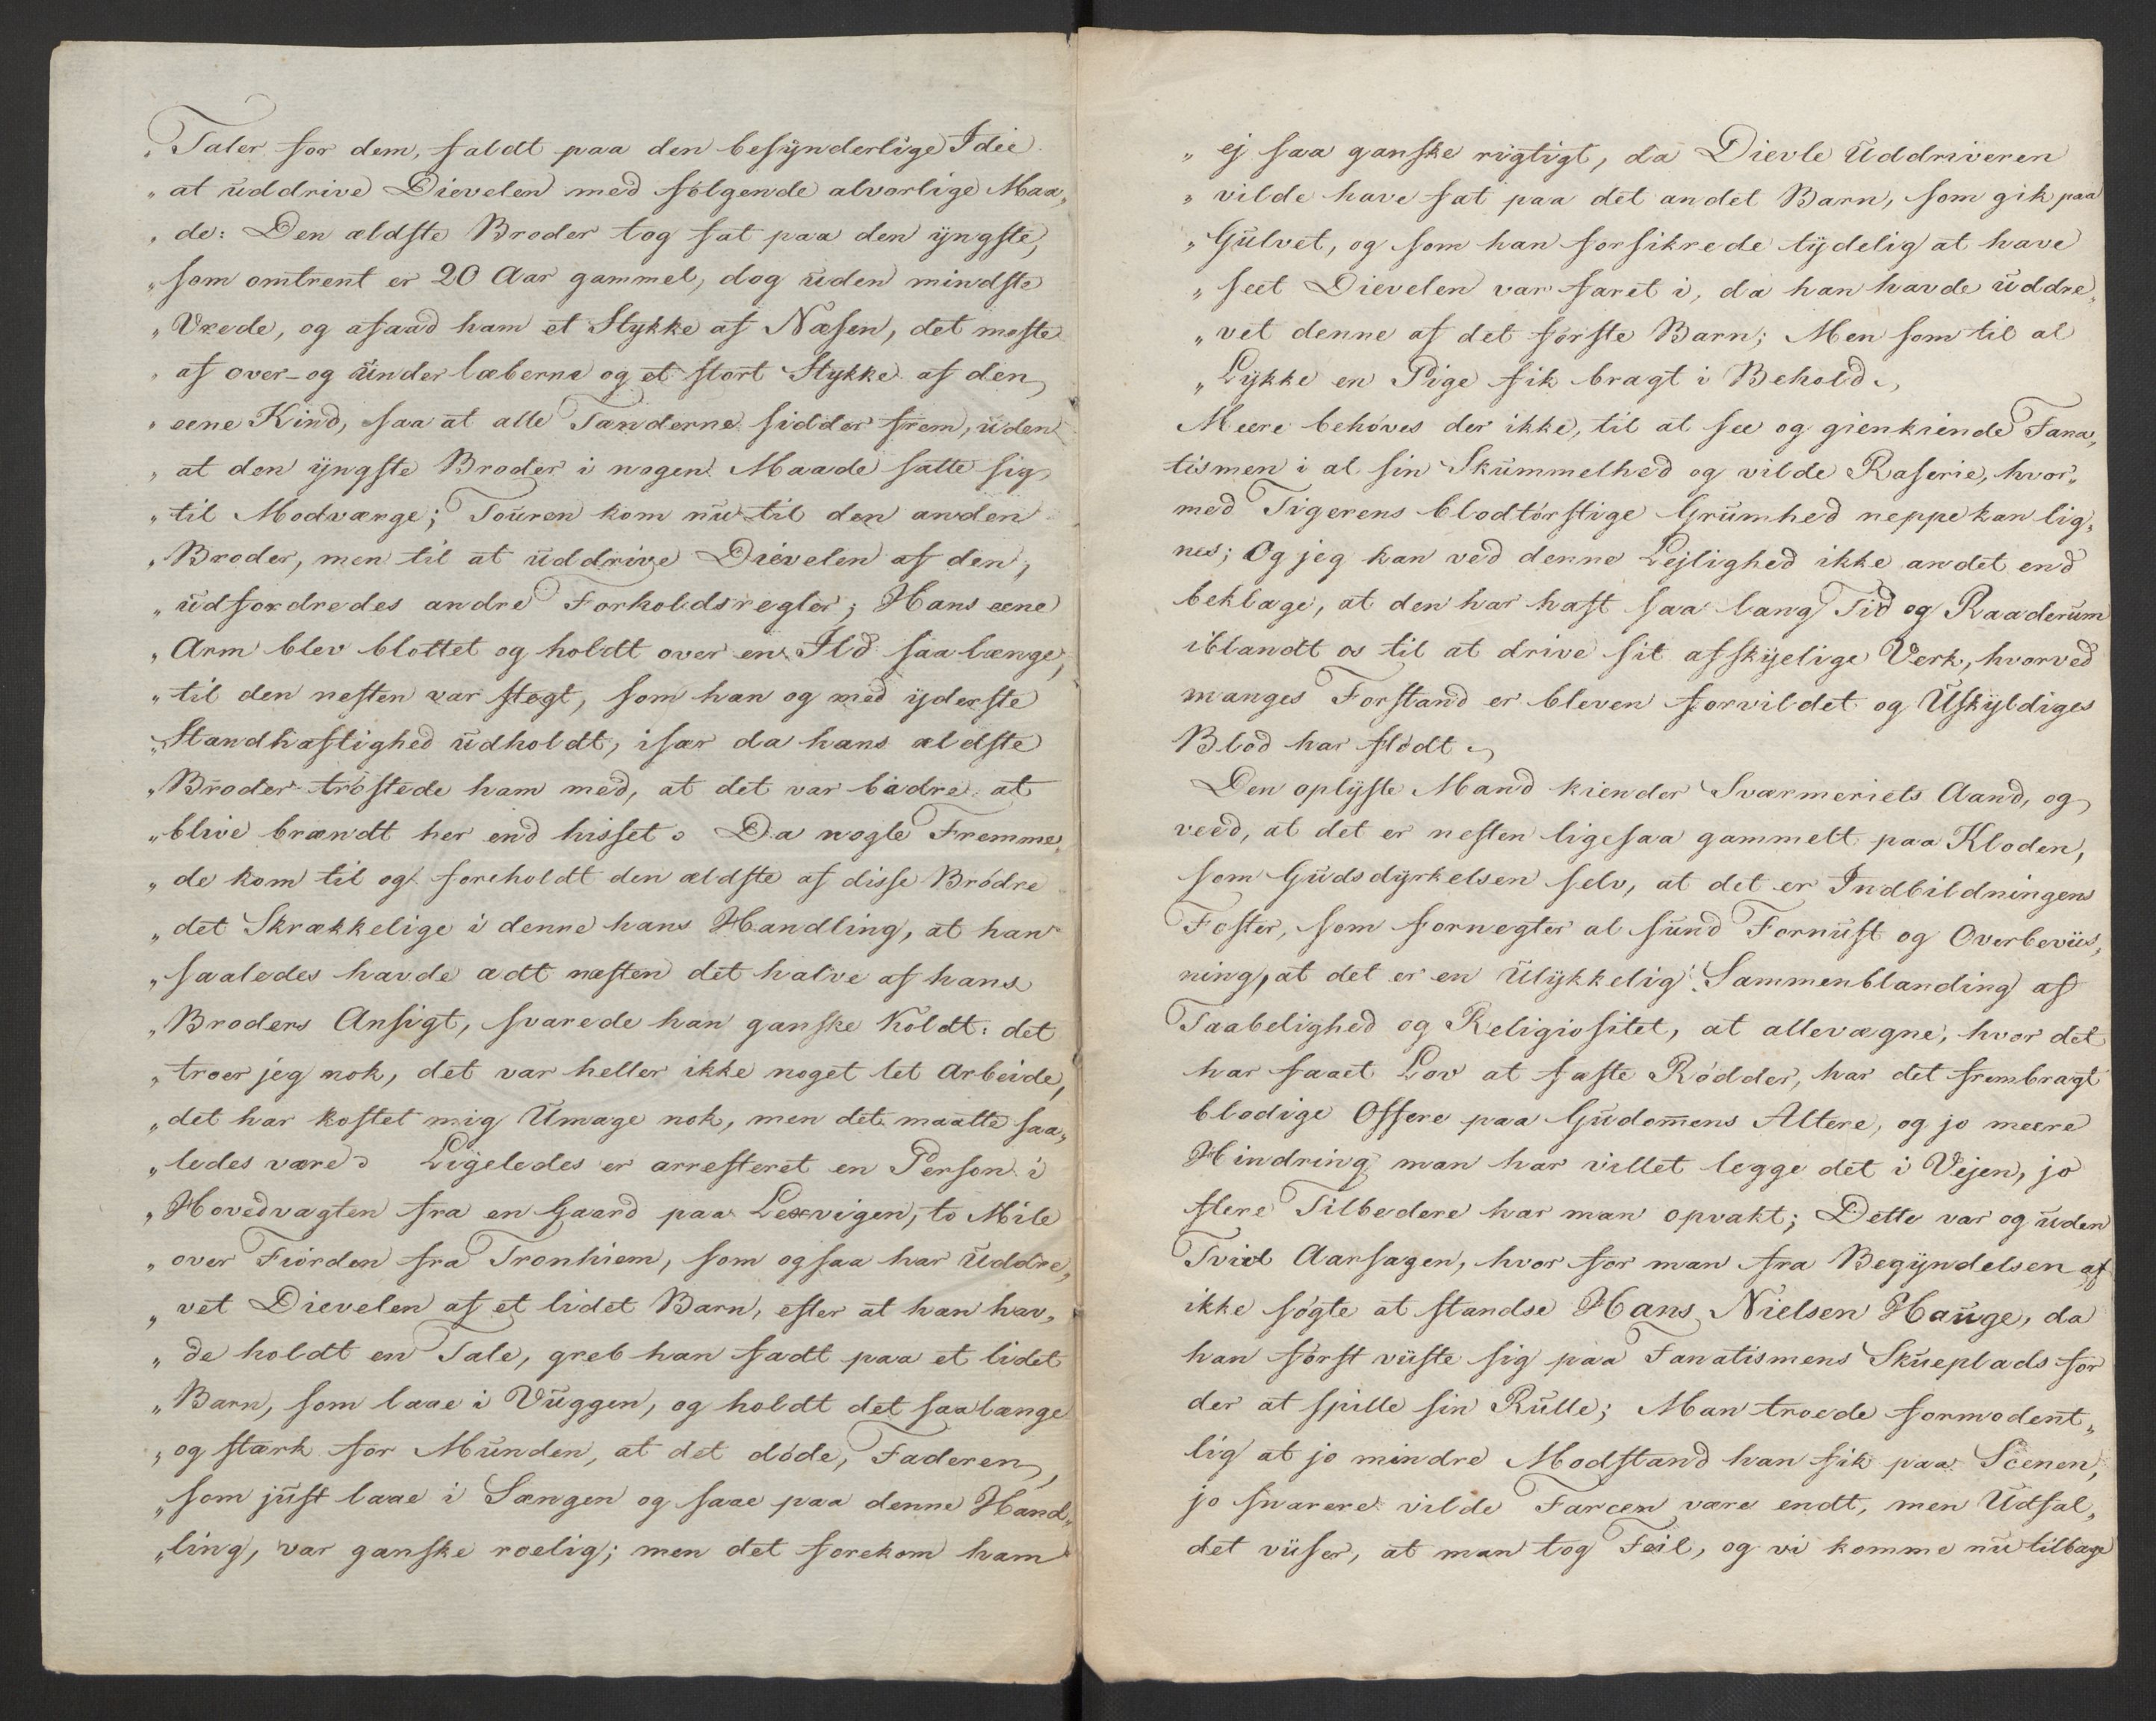 „Taler for dem, faldt paa den besÿnderlige Idée
„at uddrive Dievelen med følgende alvorlige Maa„
„de: Den ældste Broder tog fat paa den ÿngste,
„som omtrent er 20 Aar gammel, dog uden mindste
„Vrede, og afaad ham et Stykke af Næsen, det meste
„af over- og Under læberne og et stort Stykke af den
„eene Kind, saa at alle Tænderne sidder frem, uden
„at den ÿngste Broder i nogen Maade satte sig
„til Modværge; Touren kom nu til den anden
„Broder, men til at uddrive Dievelen af den,
„udfordredes andre Forholdsregler; Hans eene
„Arm blev blottet og holdt over en Ild saa længe,
„til den nesten var stegt, som han og med ÿderste
„Standhaftighed udholdt, især da hans ældste
„Broder trøstede ham med, at det var bædre at
„blive brændt her end hisset. Da nogle Fremme„
„de kom til og foreholdt den ældste af disse Brødre
„det Skrækkelige i denne hans Handling, at han
„saaledes havde ædt næsten det halve af hans
„Broders Ansigt, svarede han ganske Koldt: det
„troer jeg nok, det var heller ikke noget let Arbeide,
„det har kostet mig Umage nok, men det maatte saa„
„ledes være. Ligeledes er arresteret en Person i
„Hovedvagten fra en Gaard paa Lexvigen, to Mile
„over Fiorden fra Tronhiem, som ogsaa har Uddre„
„vet Dievelen af et lidet Barn, efter at han hav„
„de holdt en Tale, greb han fadt paa et lidet
„Barn, som laae i Vuggen, og holdt det saalænge
„og stærk for Munden, at det døde, Faderen,
„som just laae i Sængen og saae paa denne Hand„
„ling, var ganske roelig; men det forekom ham
„ej saa ganske rigtigt, da Dievle Uddriveren
„vilde have fat paa det andet Barn, som gik paa
„Gulvet, og som han forsikrede tÿdelig at have
„seet Dievelen var faret i, da han havde uddre„
„vet denne af det første Barn; Men som til al
„Lÿkke en Pige fik bragt i Behold.
Meere behøves der ikke, til at see og gienkiende Fana„
tismen i al sin Skummelhed og vilde Raserie, hvor„
med Tigerens blodtørstige Grumhed neppe kan lig„
nes; Og jeg kan ved denne Lejlighed ikke andet end
beklage, at den har haft saa lang Tid og Raaderum
iblandt os til at drive sit afskÿelige Verk, hvorved
manges Forstand er bleven forvildet og Uskÿldiges
Blod har flødt.
Den oplÿste Mand kiender Sværmeriets Aand, og
veed, at det er nesten ligesaa gammelt paa Kloden,
som Gudsdÿrkelsen selv, at det er Indbildningens
Foster, som fornegter al sund Fornuft og Overbeviis„
ning, at det er en Ulÿkkelig Sammenblanding af
Taabelighed og Religiositet, at allevægne, hvor det
har faaet Lov at fæste Rødder, har det frembragt
blodige Offere paa Gudom̅ens Altere, og jo meere
Hindring man har villet legge det i Vejen, jo
flere Tilbedere har man opvakt; Dette var og uden
Tvivl Aarsagen, hvor for man fra Begÿndelsen af
ikke søgte at standse Hans Nielsen Hauge, da
han først viiste sig paa Fanatismens Skueplads for
der at spille sin Rulle; Man troede formodent„
lig at jo mindre Modstand han fik paa Scenen,
jo snarere vilde Farcen være endt, men Udfal„
det viiser, at man tog Feil, og vi komme nu tilbage